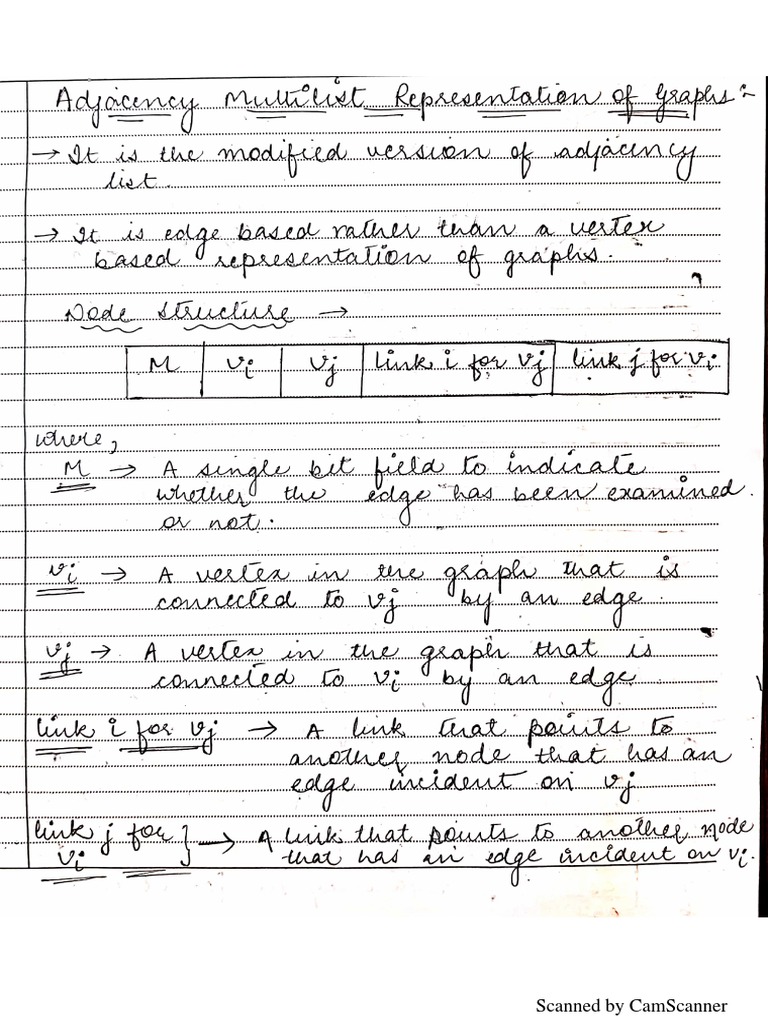 Adjacency Multilist Representation of Graphs:-
→ It is the modified version of adjacency
list.
→ It is edge based rather than a vertex
based representation of graphs.
Node Structure →
M | Vi | Vj | link i for Vj | link j for Vi
where,
M → A single bit field to indicate
whether the edge has been examined
or not.
Vi → A vertex in the graph that is
connected to Vj by an edge.
Vj → A vertex in the graph that is
connected to Vi by an edge.
link i for Vj → A link that points to
another node that has an
edge incident on Vj
link j for } → A link that points to another node
Vi that has an edge incident on Vi.
Scanned by CamScanner